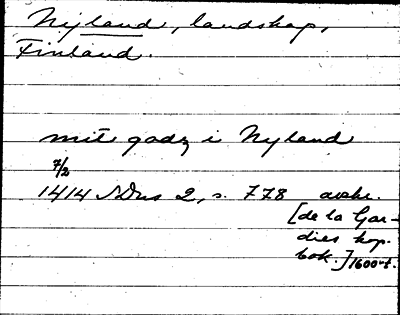 Nyland, landskap,
Finland.
mit godz i Nyland
7/2
1414 SDns 2, s. 778 avskr.
[de la Gar-
dies kop.
bok.] 1600-t.